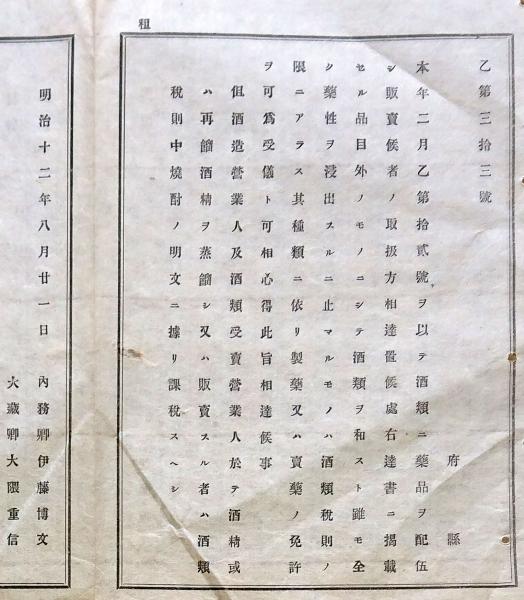 租
乙第三拾三號
府縣
本年二月乙第拾貳號ヲ以テ酒類ニ藥品ヲ配伍
シ販賣候者ノ取扱方相達置候處右達書ニ揭載
セル品目外ノモノニシテ酒類ヲ和スト雖モ全
ク藥性ヲ浸出スルニ止マルモノハ酒類稅則ノ
限ニアラス其種類ニ依リ製藥又ハ賣藥ノ免許
ヲ可爲受儀ト可相心得此旨相達候事
但酒造營業人及酒類受賣營業人於テ酒精或
ハ再餾酒精ヲ蒸餾シ又ハ販賣スル者ハ酒類
稅則中燒酎ノ明文ニ據リ課稅スヘシ
明治十二年八月廿一日
內務卿伊藤博文
大藏卿大隈重信